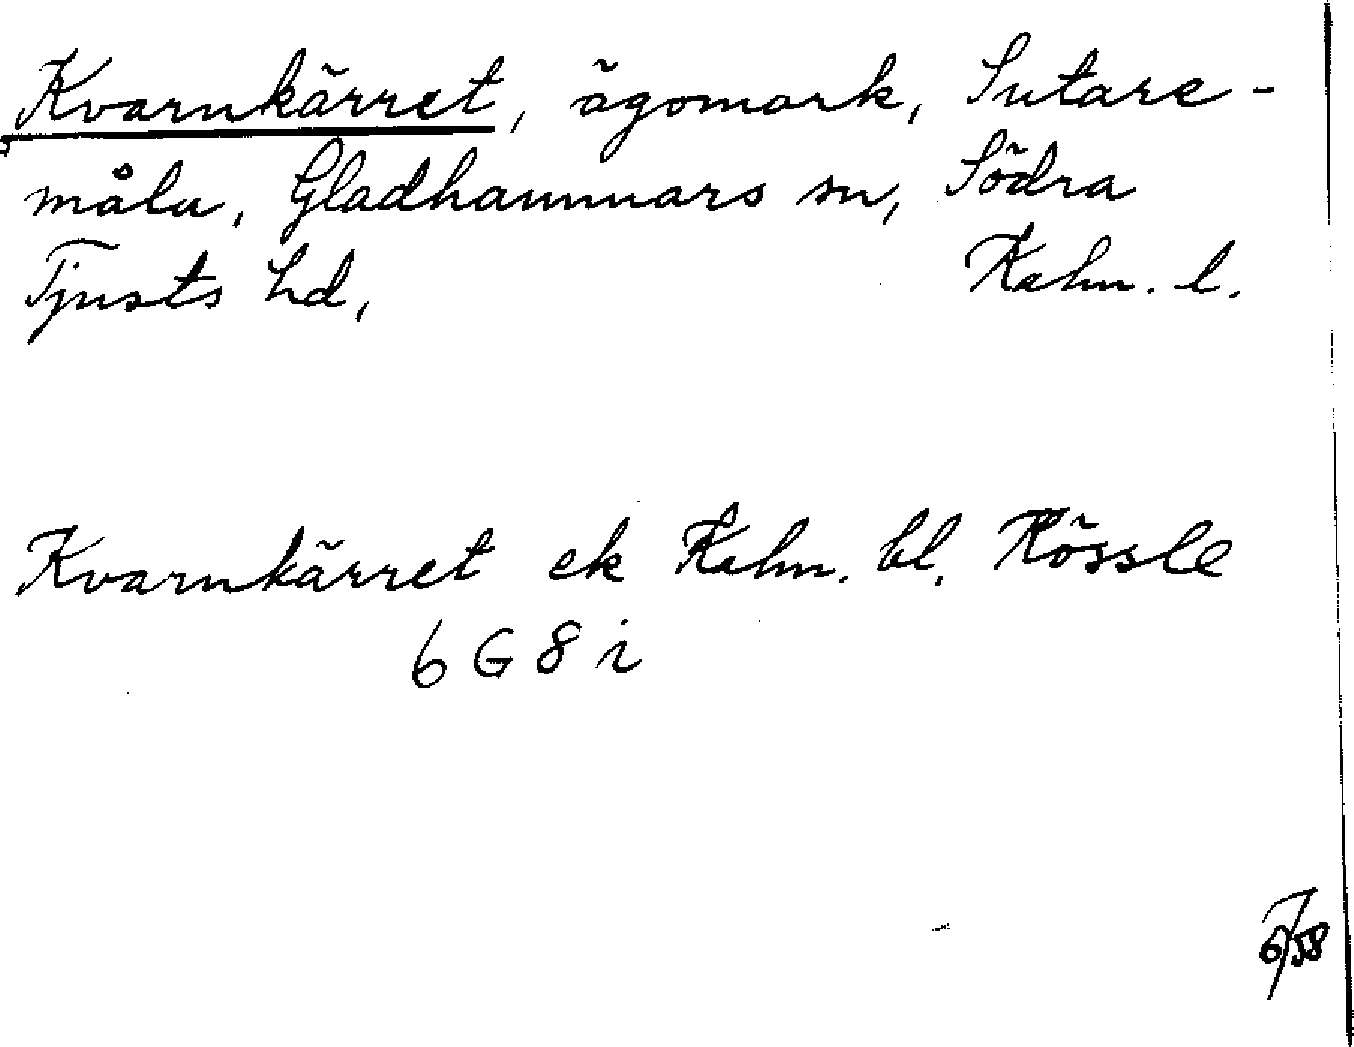 Kvarnkärret, ägomark, Sutare-
måla, Gladhammars sn, Södra
Tjusts hd, Kalm. l.
Kvarnkärret ek Kalm. bl. Rössle
6 G 8 i